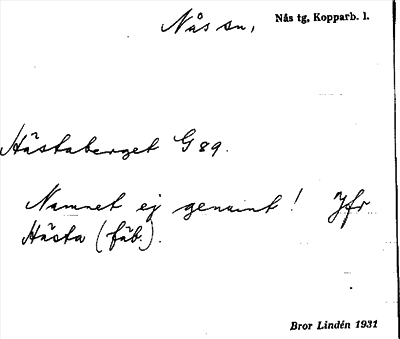 Nås sn,
Nås tg, Kopparb. l.
Hästaberget G 89.
Namnet ej genuint! Jfr
Hästa (fäb.).
Bror Lindén 1931